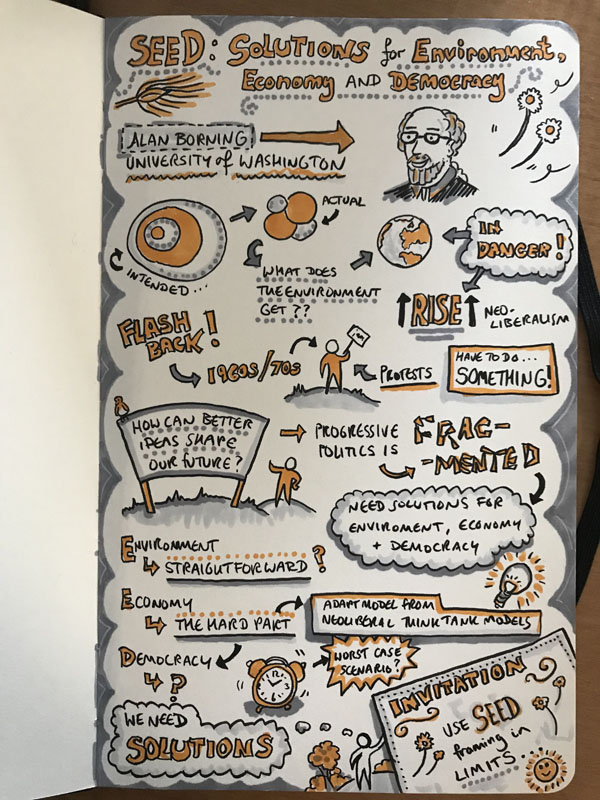 SEED: SOLUTIONS for ENVIRONMENT,
ECONOMY AND DEMOCRACY
ALAN BORNING
UNIVERSITY of WASHINGTON
ACTUAL
INTENDED...
WHAT DOES
THE ENVIRONMENT
GET??
IN
DANGER!
RISE
NEO-
LIBERALISM
FLASH
BACK!
1960s/70s
PROTESTS
HAVE TO DO...
SOMETHING!
HOW CAN BETTER
IDEAS SHAPE
OUR FUTURE?
PROGRESSIVE
POLITICS IS
FRAG-
-MENTED
NEED SOLUTIONS FOR
ENVIROMENT, ECONOMY
+ DEMOCRACY
ENVIRONMENT
STRAIGHTFORWARD?
ECONOMY
THE HARD PART
ADAPT MODEL FROM
NEOLIBERAL THINK TANK MODELS
DEMOCRACY
?
WORST CASE
SCENARIO?
WE NEED
SOLUTIONS
INVITATION
USE SEED
framing in
LIMITS...